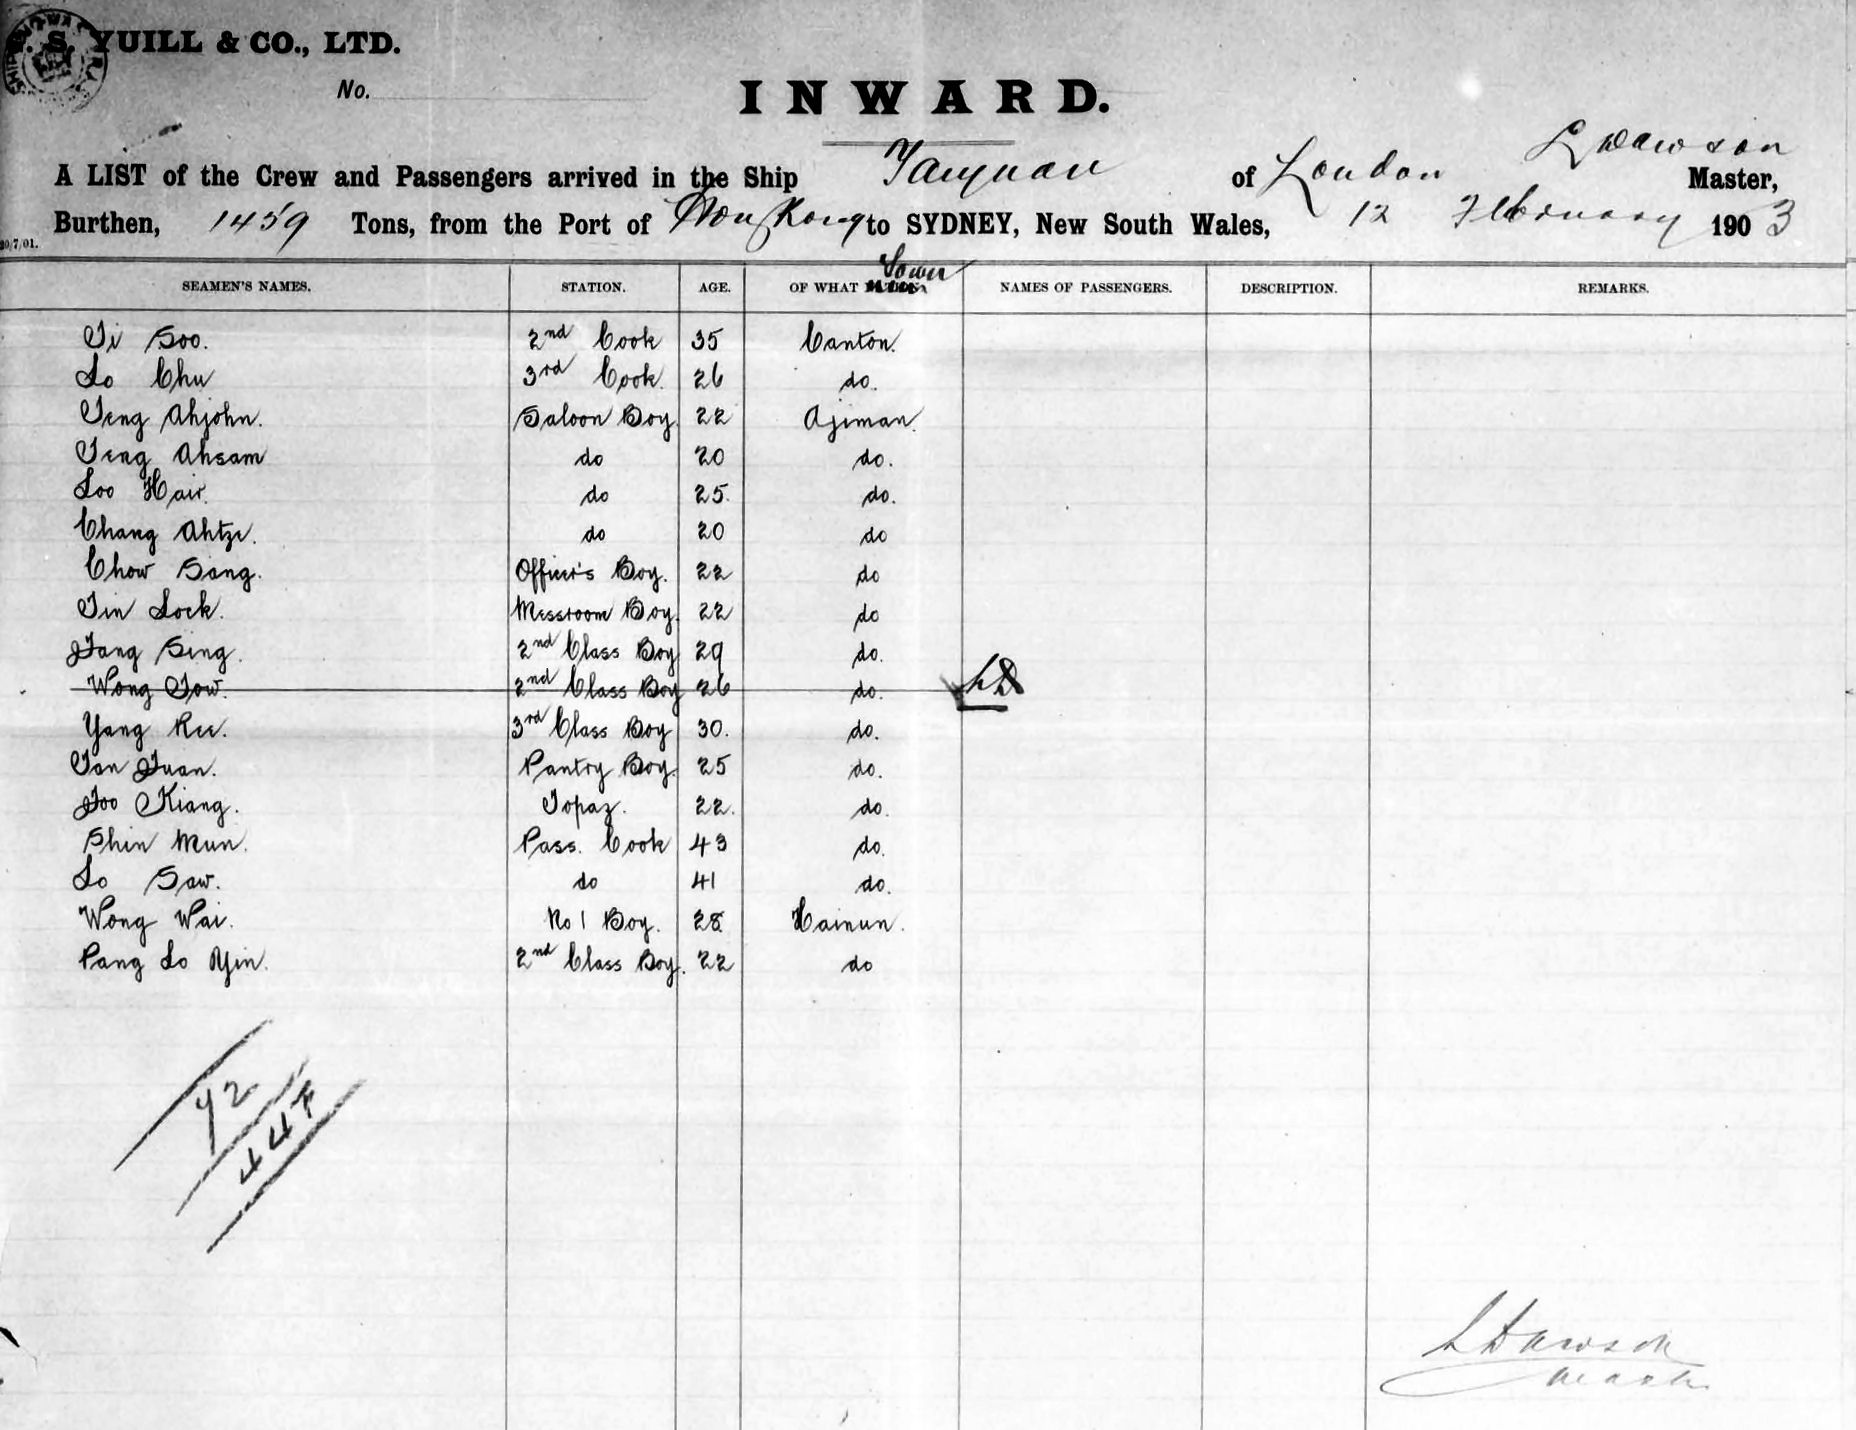 S. YUILL & CO., LTD.
No.
INWARD.
L Dawson
A LIST of the Crew and Passengers arrived in the Ship Taiyuan of London Master,
Burthen, 1459 Tons, from the Port of Hong Kong to SYDNEY, New South Wales, 12 February 1903
30/7/01.
Town
SEAMEN'S NAMES. STATION. AGE. OF WHAT NAMES OF PASSENGERS. DESCRIPTION. REMARKS.
Ti Soo. 2nd Cook 35 Canton.
Lo Chu 3rd Cook. 26 do.
Teng Ahjohn. Saloon Boy 22 Ajiman.
Teng Ahsam do 20 do.
Loo Hair. do 25. do.
Chang Ahtze. do 20 do
Chow Sang. Officer's Boy. 22 do
Tin Lock. Messroom Boy. 22 do
Tang Sing. 2nd Class Boy 29 do.
Wong Tow. 2nd Class Boy 26 do. LD
Yang Kee. 3rd Class Boy 30. do.
Tan Juan. Pantry Boy. 25 do.
Joo Kiang. Topaz. 22. do.
Shin Mun. Pass. Cook 43 do.
Lo Saw. do 41 do.
Wong Wai. No 1 Boy. 28 Hainun.
Pang Lo Yin. 2nd Class Boy. 22 do
42
44
L Dawson
Master